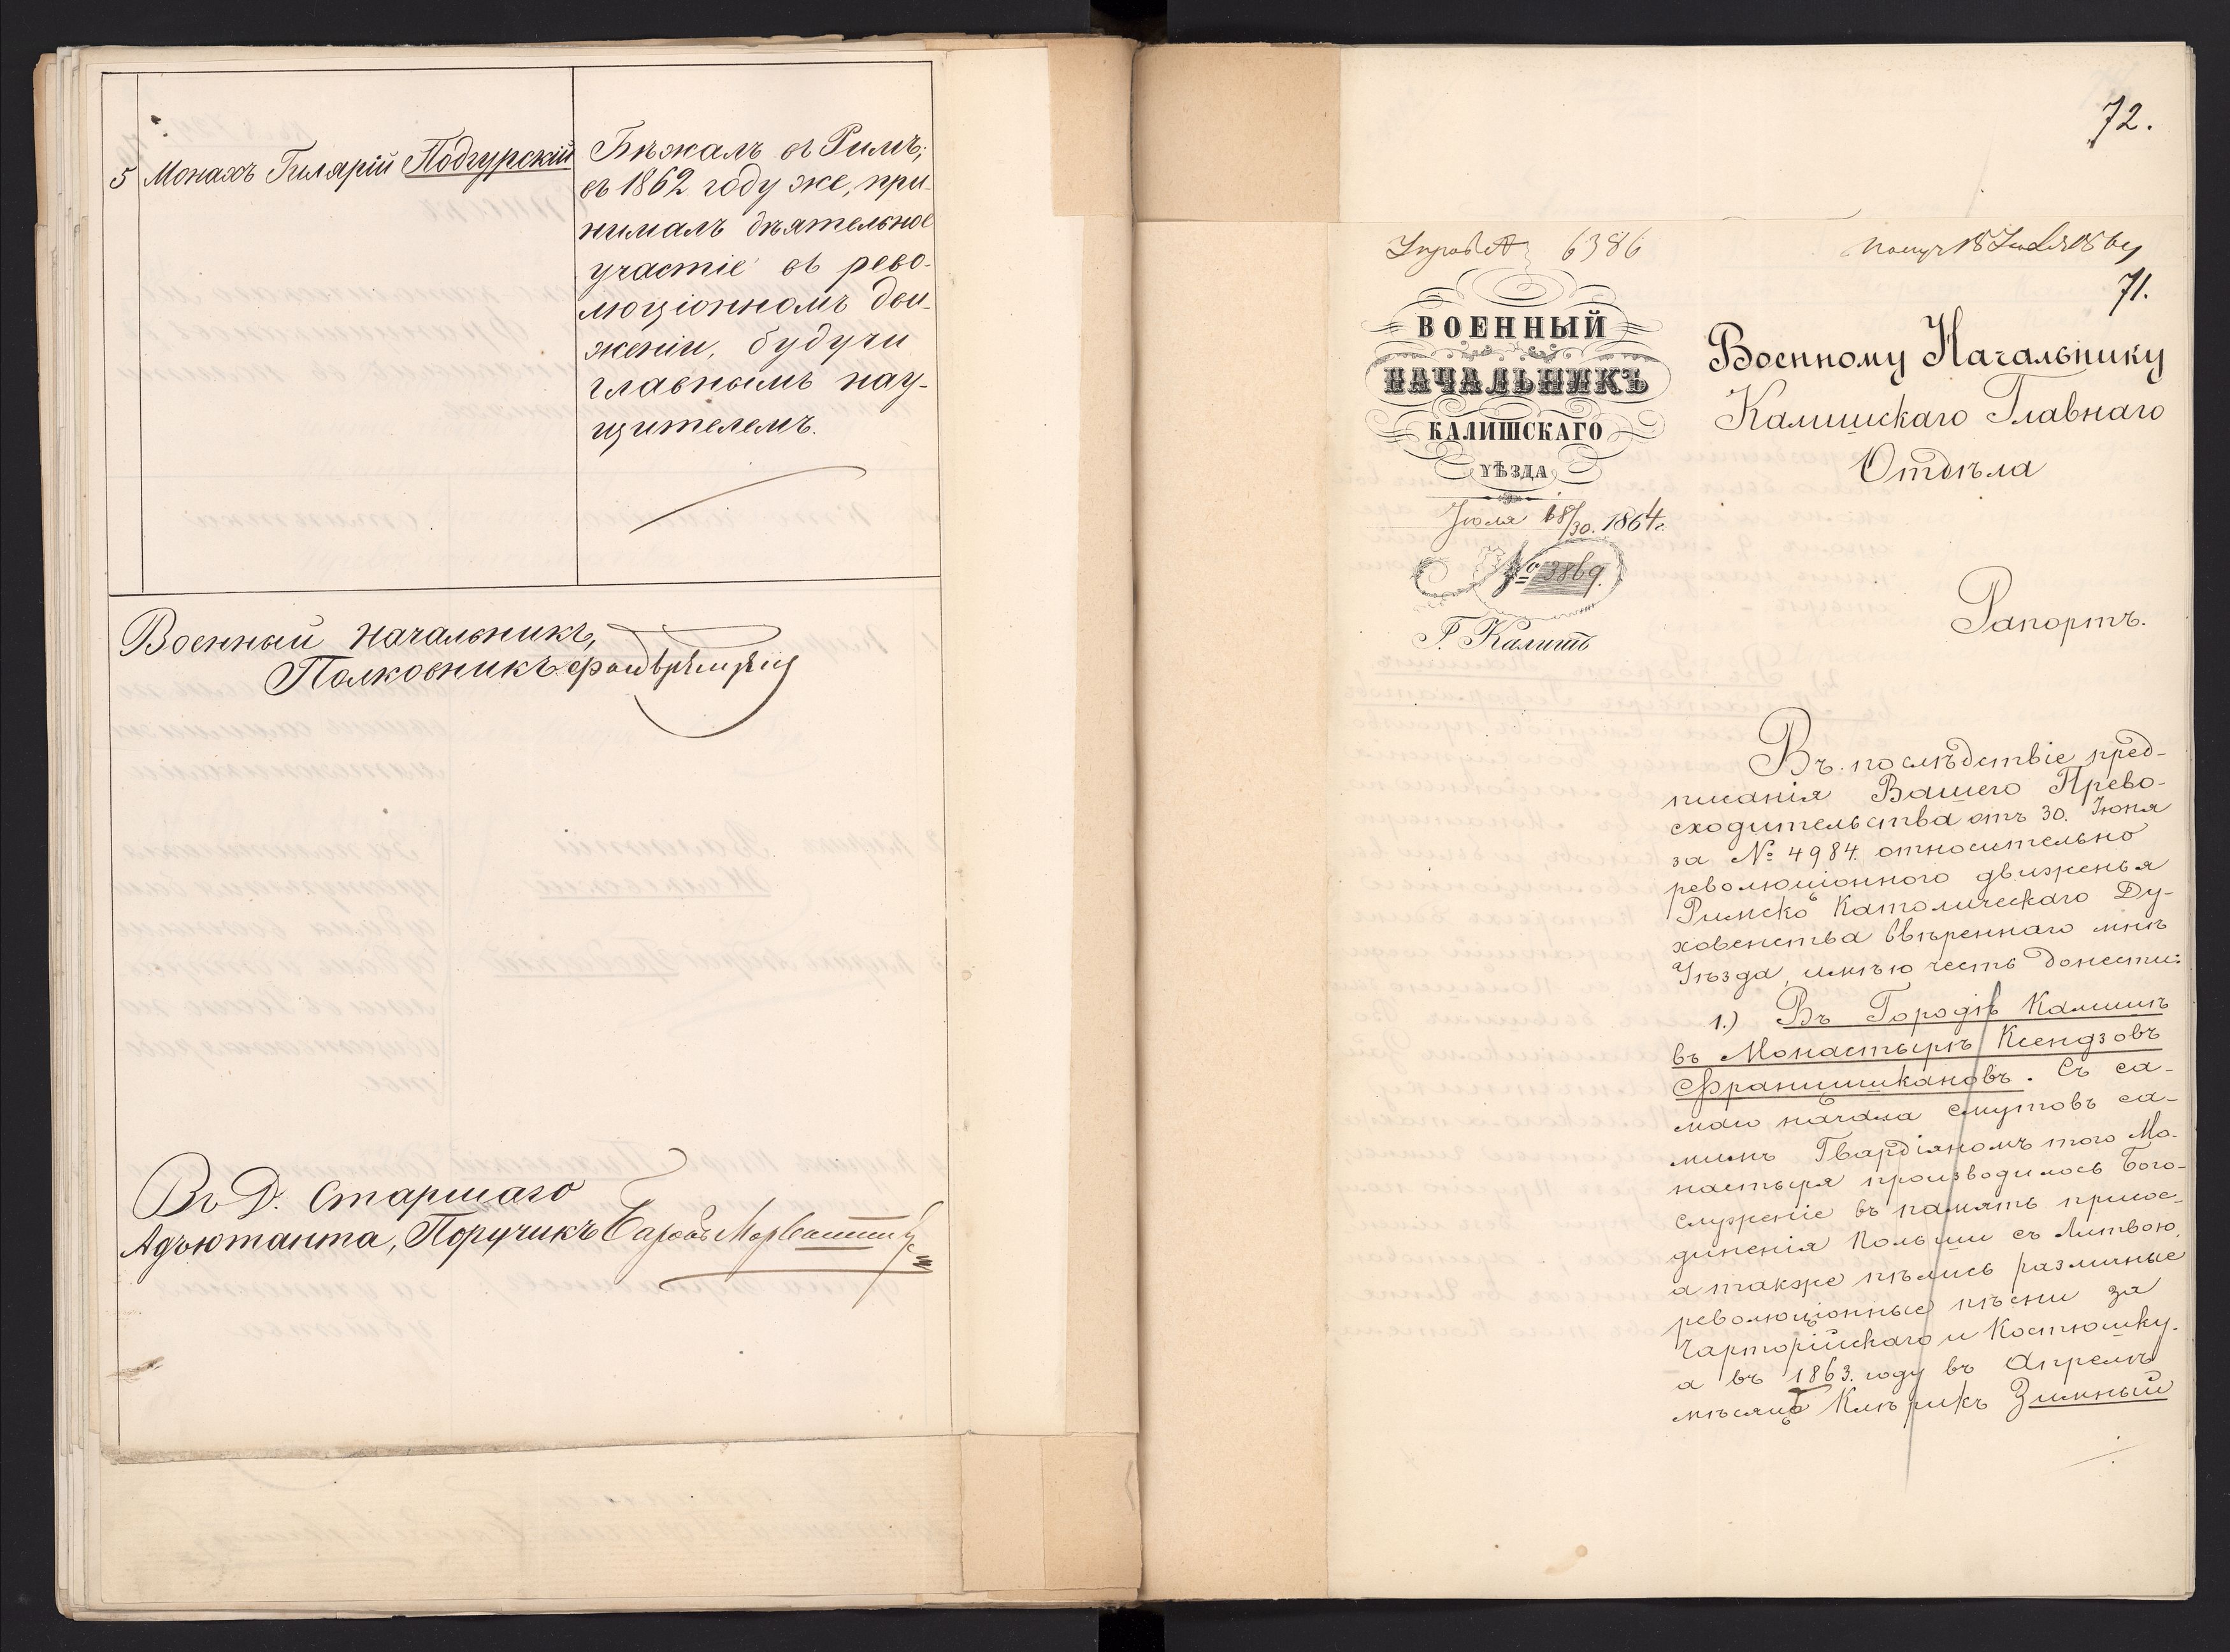 5 Монахъ Гилярій Подгурскій
Бѣжалъ въ Римъ;
въ 1862 году же, при-
нималъ дѣятельное
участіе въ рево-
люціонномъ дви-
женіи, будучи
главнымъ нау-
щителемъ.
Военный Начальникъ,
Полковникъ
Въ Д. Старшаго
Адъютанта, Поручикъ Баронъ
72.
6386
71.
ВОЕННЫЙ
НАЧАЛЬНИКЪ
КАЛИШСКАГО
УѢЗДА
Іюля 18/30. 1864 г.
№ 3869.
Г. Калишъ
Военному Начальнику
Калишскаго Главнаго
Отдѣла
Рапортъ.
Въ послѣдствіе пред-
писанія Вашего Прево-
сходительства отъ 30. Іюня
за № 4984. относительно
революціонного движенья
Римско Католическаго Ду-
ховенства ввѣреннаго мнѣ
Уѣзда, имѣю честь донести:
1.) Въ Городѣ Калишѣ
въ Монастырѣ Ксендзовъ
Францишкановъ. Съ са-
маго начала смутовъ са-
мимъ Гвардіяномъ того Мо-
настыря производилось Бого-
служеніе въ память присое-
диненія Польши съ Литвою,
а также пѣлись различные
революціонные пѣсни за
Чарторійскаго и Костюшку.
а въ 1863. году въ Апрелѣ
мѣсяцѣ Клѣрикъ Зимный